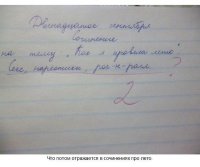 Двенадцатое сентября
Сочинение
на тему „Как я провёл лето"
Секс, наркотики, рок-н-ролл
?
2
Что потом отражается в сочинениях про лето